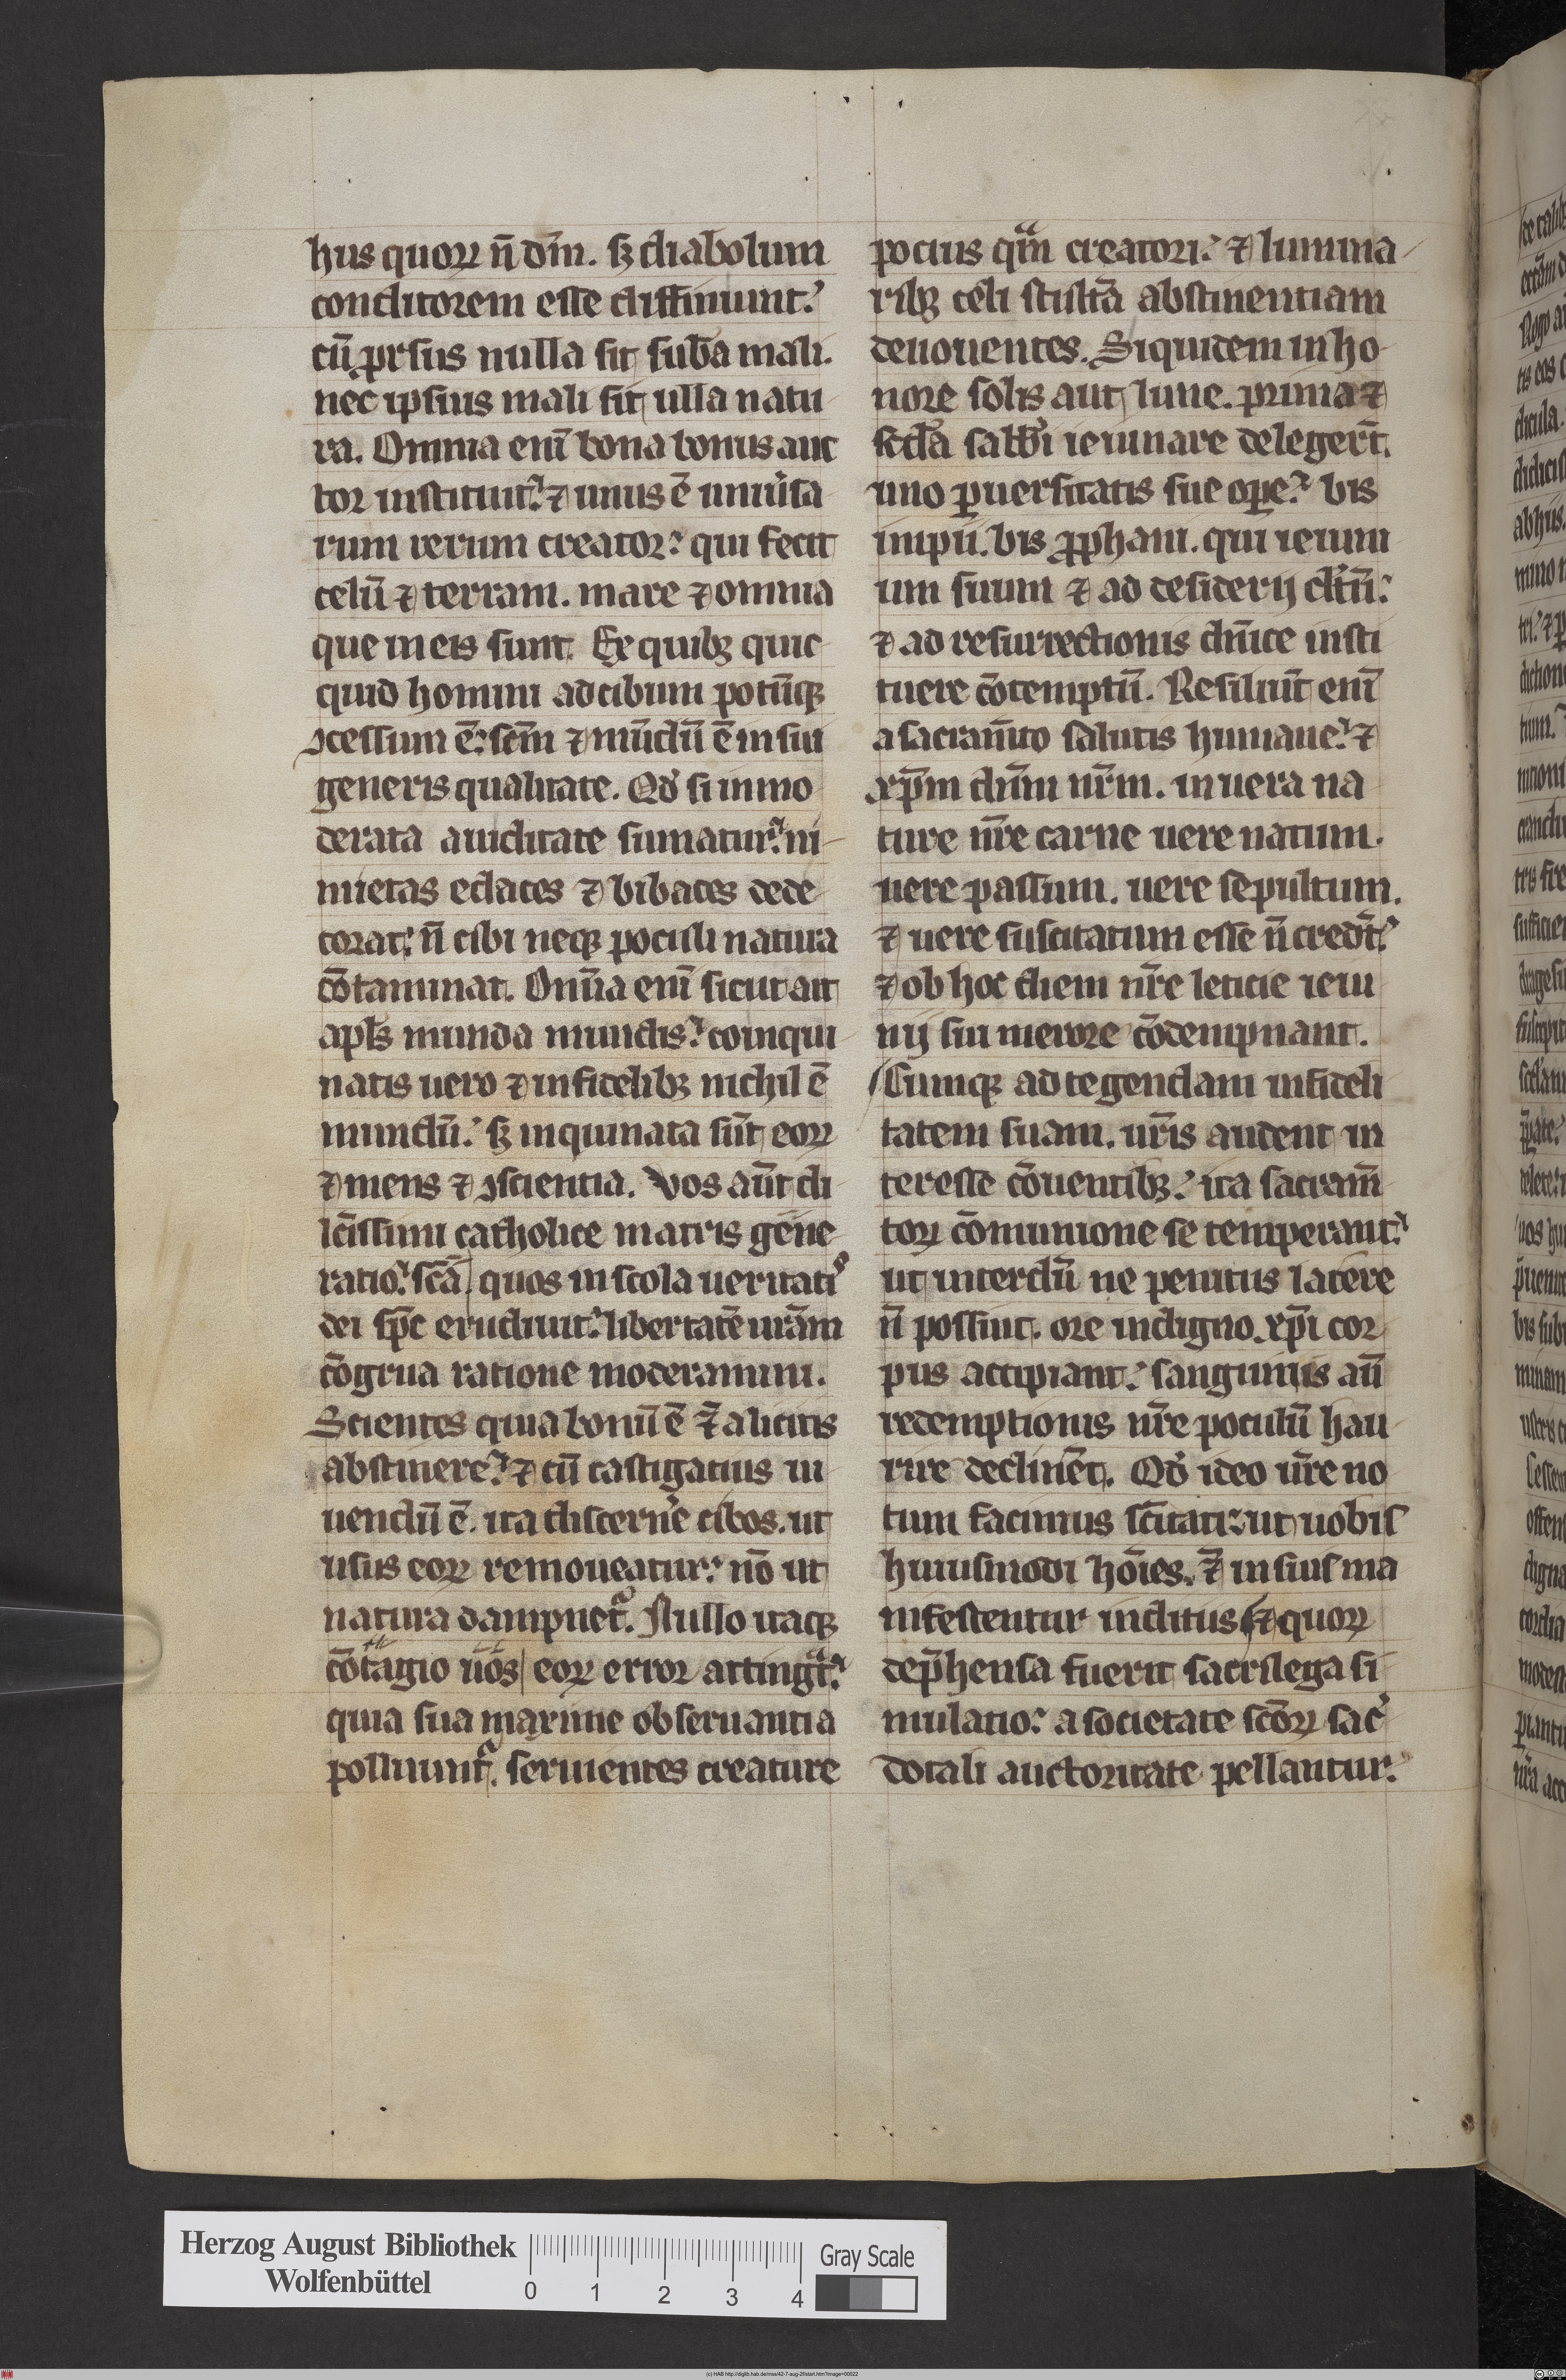 hus quoꝝ n̄ dm̄. sꝫ diabolum
conditorem esse diffiniunt.
cū ꝓrsus nulla sit suba mali.
nec ipsius mali sit ulla natu
ra. Omnia enī bona bonus auc
tor instituit. ⁊ unus ē uniu'sa
rum rerum creator. qui fecit
celū ⁊ terram. mare ⁊ omnia
que in eis sunt. Ex quibꝫ quic
quid homini ad cibum potūqꝫ
ↄcessum ē. scm̄ ⁊ mūdū ē in sui
generis qualitate. Qd' si inmo
derata auiditate sumatur. ni
mietas edaces ⁊ bibaces dede
corat. n̄ cibi neqꝫ poculi natura
cōtaminat. Om̄ia enī sicut ait
apl's munda mundis. coinqui
natis uero ⁊ infidelibꝫ nichil ē
mundū. sꝫ inquinata sūt eoꝝ
⁊ mens ⁊ ↄscientia. Vos aūt di
lc̄issimi catholice matris gene
ratio. scā quos in scola ueritatis
dei spc̄ erudiuit. libertatē urām
cōgrua ratione moderamini.
Scientes quia bonū ē ⁊ a licitis
abstinere. ⁊ cū castigatius ui
uendū ē. ita discern'e cibos. ut
usus eoꝝ remoueatur. nō ut
natura dampnet. Nullo itaqꝫ
cōtagio uos eoꝝ error attingat.
quia sua maxime obseruantia
polluunt. seruientes creature
pocius qm̄ creatori. ⁊ lumina
ribꝫ celi stultā abstinentiam
deuouentes. Siquidem in ho
nore solis aut lune. prima ⁊
scd'a sabb'i ieiunare delegert.
uno ꝑuersitatis sue ope. bis
impii. bis ꝓphani. qui ieiuni
um suum ⁊ ad desiderij
⁊ ad resurrectionis dn̄ice insti
tuere cōtemptū. Resiliūt enī
a sacram̄to salutis humane. ⁊
xp̄m dn̄m nr̄m. in uera na
ture nr̄e carne uere natum.
uere passum. uere sepultum.
⁊ uere suscitatum esse n̄ credt.
⁊ ob hoc diem nr̄e leticie ieiu
nij sui merore cōdempnant.
Cumqꝫ ad tegendam infideli
tatem suam. nr̄is audent in
teresse cōuentibꝫ. ita sacram̄
toꝝ cōmunione se temperant.
ut interdū ne penitus latere
n̄ possint. ore indigno xp̄i cor
pus accipiant. sanguinis aū
redemptionis nr̄e poculū hau
rire declinēt. Qd' ideo ur̄e no
tum facimus sc̄itati. ut uobis
huiusmodi hoīes. ⁊ in siusma
nifestentur inditus ⁊ quoꝝ
dep̄hensa fuerit sacrilega si
mulatio. a societate scōꝝ sac'
dotali auctoritate pellantur.
Herzog August Bibliothek
Wolfenbüttel
0 1 2 3 4
Gray Scale
(c) HAB http://diglib.hab.de/mss/42-7-aug-2f/start.htm?image=00022